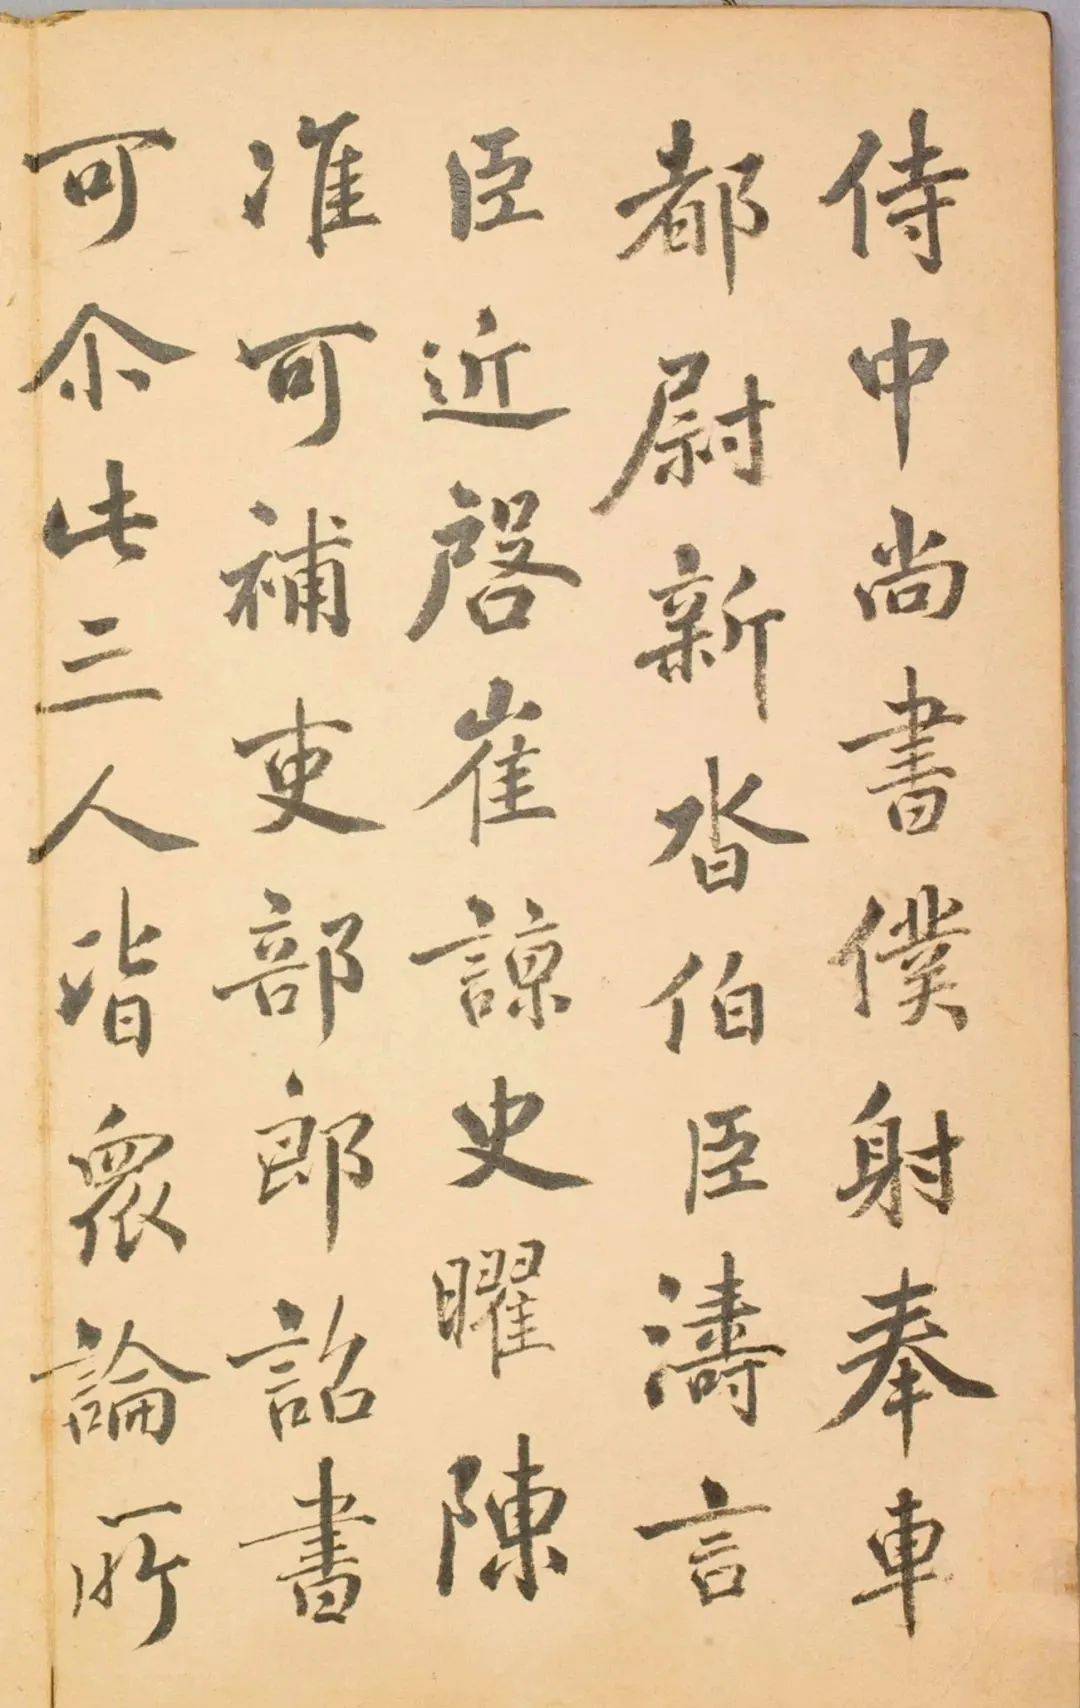 侍中尚書僕射奉車
都尉新沓伯臣濤言
臣近啓崔諒史曜陳
准可補吏部郎詔書
可尒此三人皆衆論所